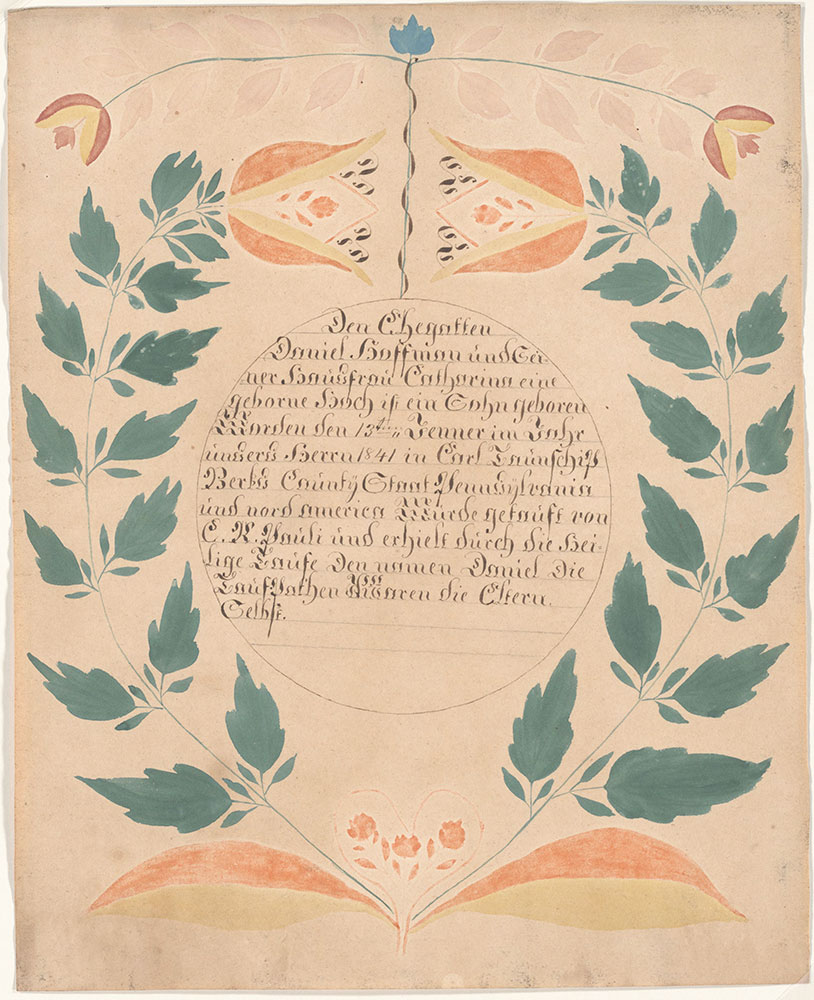 Den Ehegatten
Daniel Hoffman und Sei-
ner Hausfrau Catharina eine
geborne Hoch ist ein Sohn geboren
Worden den 13ten Jenner im Jahr
unsers Herrn 1841 in Earl Taunschip
Berks County Staat Pennsylvania
und nord america Wurde getauft von
C. R. Pauli und erhielt durch die Hei-
lige Taufe Den namen Daniel Die
TaufPathen Waren die Eltern.
Selbst.